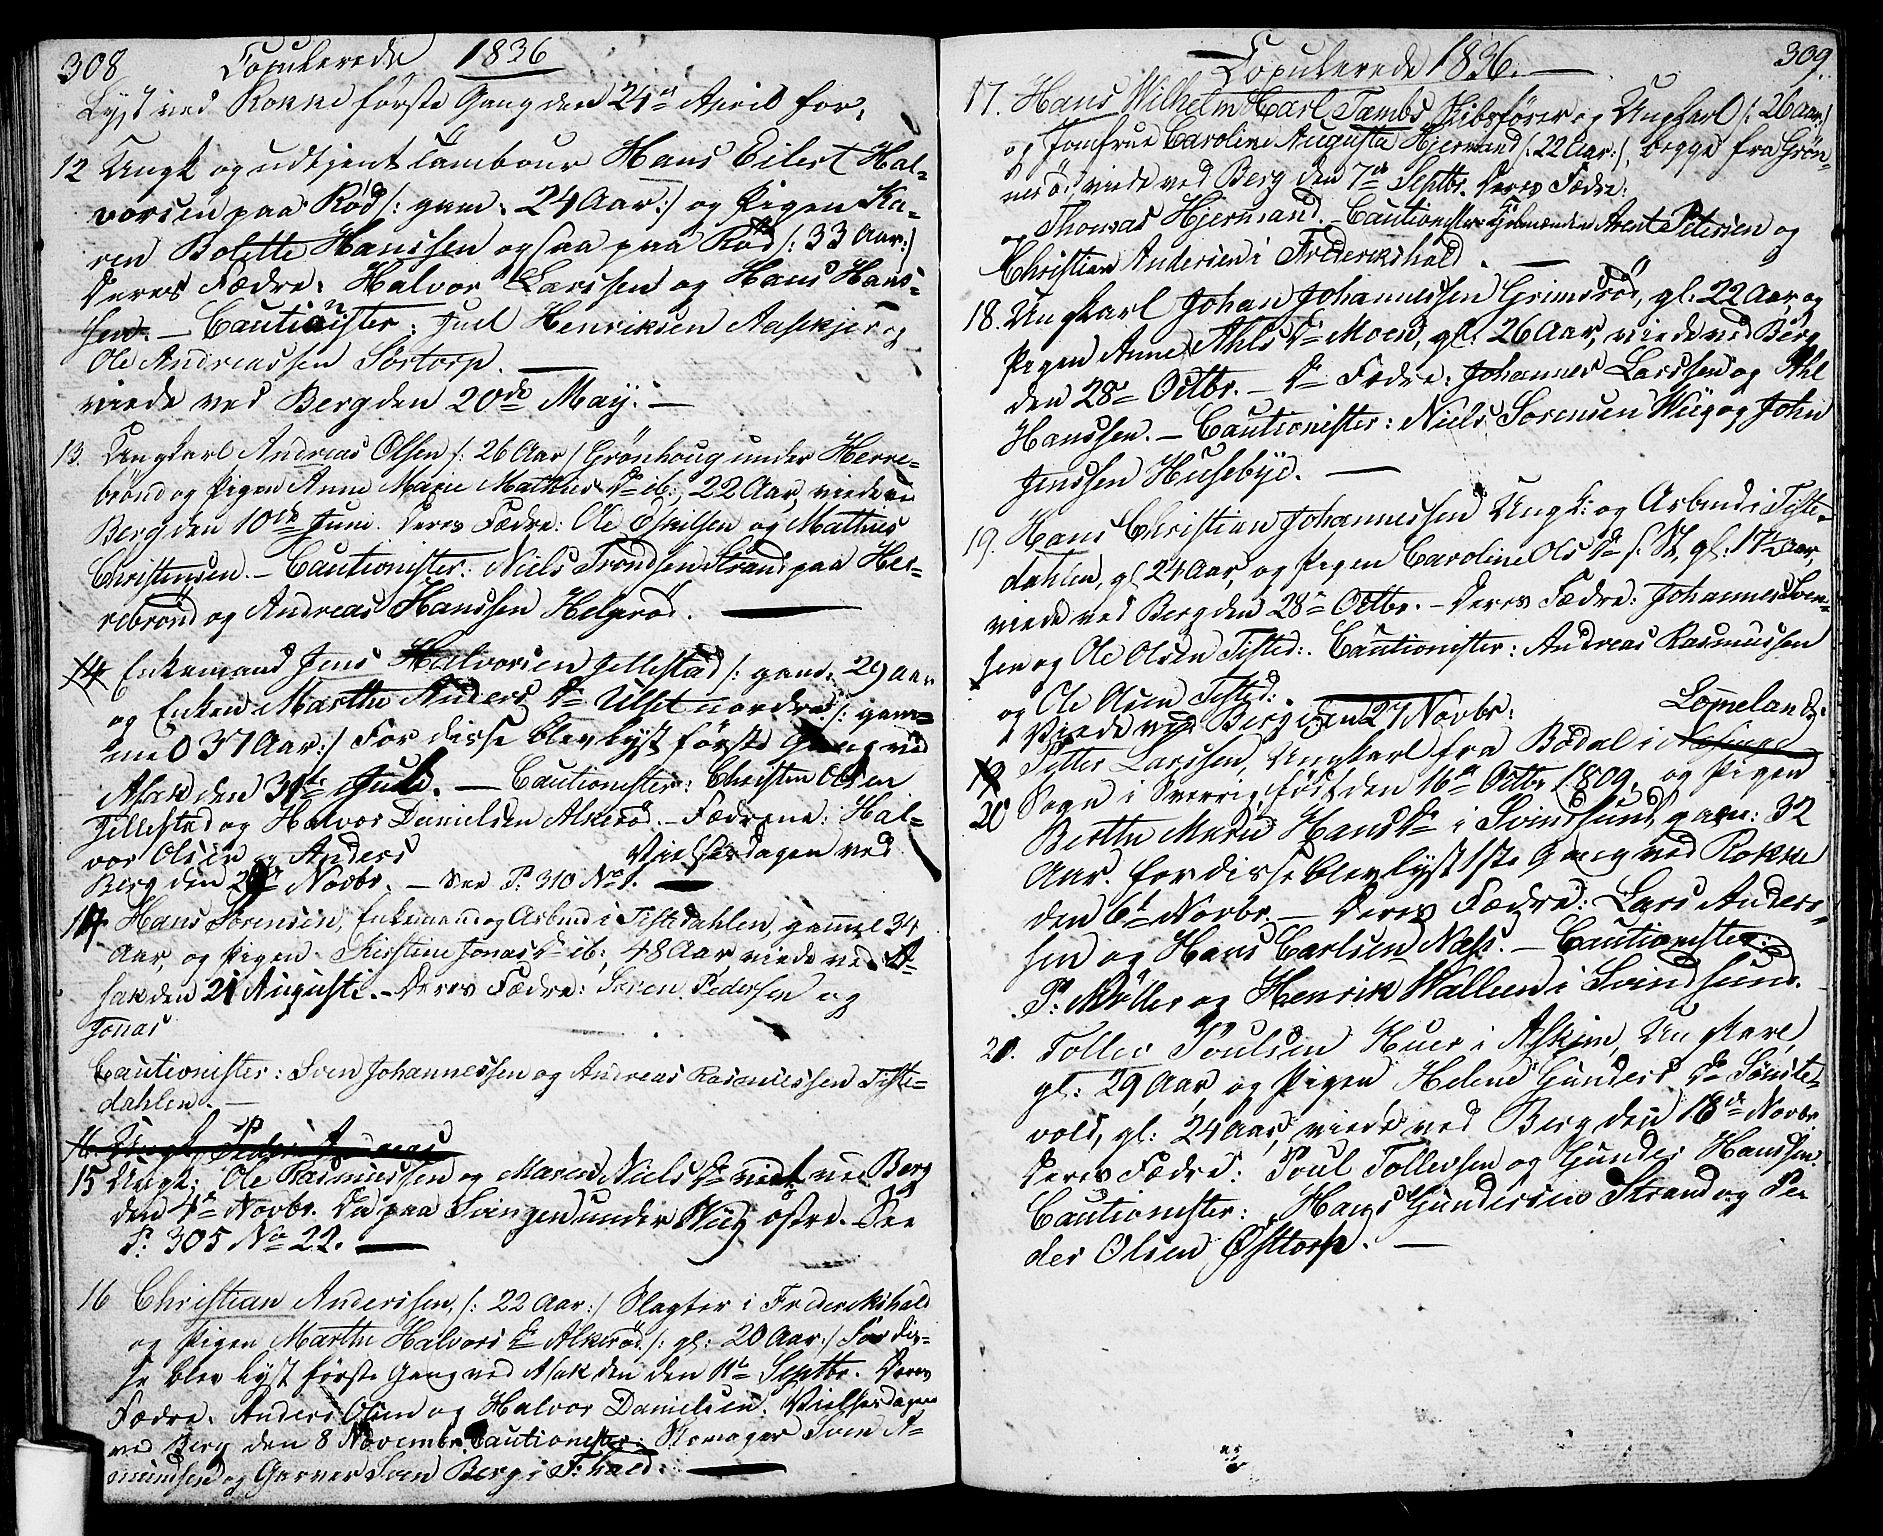 308 Copulerede 1836
Lyst ved Rokke første Gang den 21de April for,
12 Ungk og udtjent Tambour Hans Eilert Hal-
vorsen paa Röd /: gam. 24 Aar:/ og Pigen Ka-
ren Bolette Hanssen ogsaa paa Röd /: 33 Aar:/
Deres Fædre: Halvor Larssen og Hans Hans-
sen. — Cautionister: Juel Henriksen Aaskjer og
Ole Andreassen Sörtorp. —
viede ved Berg den 20de May. —
13. Ungkarl Andreas Olsen /: 26 Aar / Grönhoug under Herre-
brönd og Pigen Anne Marie Mathias Dr ib:, 22 Aar, viede ved
Berg den 10de Juni. Deres Fædre: Ole Eskilsen og Mathias
Christensen. — Cautionister: Niels Trondsen Strand paa Her-
rebrönd og Andreas Hanssen Helgeröd. —
14 Enkemand Jens Halvorsen Jellestad /: gam: 29 Aar
og Enken Marthe Anders Dr Ulset nordre /: gam-
mel 37 Aar:/ For disse blev lyst første Gang ved
Asak den 31te Juli. — Cautionister: Christen Olsen
Jellestad og Halvor Danielsen Alkeröd. — Fædrene: Hal-
vor Olsen og Anders Vielsesdagen ved
Berg den Novbr. — See P. 310 No 1. —
14 Hans Sörensen, Enkemand og Arbmd i Tistedahlen, gammel 34
Aar, og Pigen Kirstine Jonas Dr ib:, 48 Aar viede ved A-
sak den 21 Augusti. — Deres Fædre: Sören Pedersen og
Jonas
Cautionister: Sven Johannessen og Andreas Rasmussen Tiste-
dahlen. —
16. Ungk. Peder
15 Ungk: Ole Rasmussen og Maren Niels Dr viet ved Berg
den 4de Novbr. Da paa Svingen under Wiig östre. See
P: 305 No 22. —
16 Christian Anderssen, /: 22 Aar:/ Slagter i Frederikshald
og Pigen Marthe Halvors Dr Alkeröd /: gl: 20 Aar:/ For dis-
se blev lyst første Gang ved Asak den den 11te Septbr. Deres
Fædre. Anders Olsen og Halvor Danielsen. Vielsesdagen
ved Berg den 8 November. Cautionister: Skomager Sven A-
mundsen og Garver Sven Berg i F:hald. —
Copulerede 1836. — 309.
17. Hans Wilhelm Carl Tambs, Skibsfører og Ungkarl /: 26 Aar:/
og Jomfrue Caroline Augusta Hjermand /: 22 Aar:/, begge fra Grön-
nesö, viede ved Berg den 7de Septbr. Deres Fædre:
og Thomas Hjermand. — Cautionister: Arent Petersen og
Christian Andersen i Frederikshald. —
18. Ungkarl Johan Johannessen Grimsröd, gl: 22 Aar og
Pigen Anne Ahls Dr Moen, gl: 26 Aar, viede ved Berg
den 28de Octbr. — Dr Fædre: Johannes Larssen og Ahl
Hanssen. — Cautionister: Niels Sörensen Wiig og John
Jenssen Husebye. —
19. Hans Christian Johannessen Ungk: og Arbmd i Tiste-
dahlen, gl 24 Aar, og Pigen Caroline Ols Dr /: St, gl: 17½ Aar,
viede ved Berg den 28de Octbr. — Deres Fædre: Johannes Sven-
sen og Ole Olsen Tisted:. Cautionister: Andreas Rasmussen
og Ole Olsen Tisted:. —
Viede ved Berg den 27 Novbr: Lommelands
19 Petter Larssen, Ungkarl fra Bödal i
20 Sogn i Sverrig født den 16de Octbr 1809, og Pigen
Berthe Marie Hans Dr i Svindsund gam: 32
Aar. for disse blev lyst 1ste Gang ved Rokke
den 6te Novbr. — Deres Fædre: Lars Anders-
sen og Hans Carlsen Næss. — Cautionister:
P: Möller og Henrik Walleen i Svindsund.
21. Tollev Poulsen Huer i Askim, Ungkarl,
gl: 29 Aar, og Pigen Helene Gunders Dr Sönste-
vold, gl: 24 Aar, viede ved Berg den 18de Novbr
Deres Fædre: Poul Tollevsen og Gunder Hanssen.
Cautionister: Hans Gundersen Strand og Pe-
der Olsen Östtorp. —